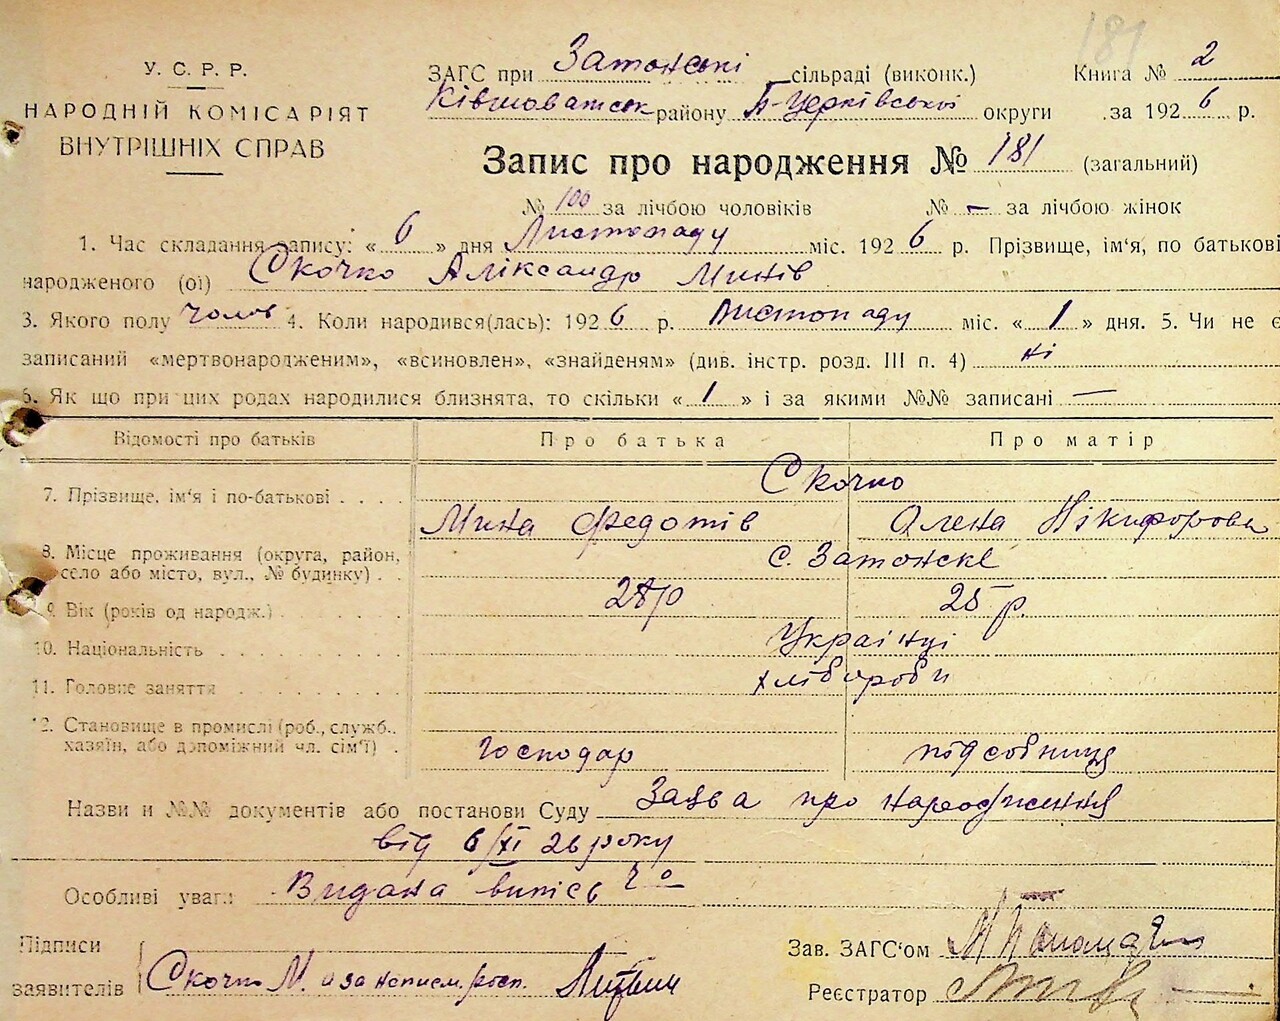 181
У. С. Р. Р.
НАРОДНІЙ КОМІСАРІЯТ
ВНУТРІШНІХ СПРАВ
ЗАГС при Затонські сільраді (виконк.) Книга № 2
Ківшоватськ району Б-Церківської округи за 1926 р.
Запис про народження № 181 (загальний)
№ 100 за лічбою чоловіків № — за лічбою жінок
1. Час складання запису: « 6 » дня Листопаду міс. 1926 р. Прізвище, ім'я, по батькові
народженого (ої) Скочко Аліксандр Минів
3. Якого полу чолов 4. Коли народився(лась): 1926 р. Листопаду міс. « 1 » дня. 5. Чи не є
записаний «мертвонародженим», «всиновлен», «знайденям» (див. інстр. розд. III п. 4) ні
6. Як що при цих родах народилися близнята, то скільки « 1 » і за якими №№ записані —
Відомості про батьків Про батька Про матір
7. Прізвище, ім'я і по-батькові . . . . Скочко
Мина Федотів Олена Нікифорова
8. Місце проживання (округа, район,
село або місто, вул., № будинку) . . с. Затонске
9. Вік (років од народж.) . . . . . 28 р 25 р.
10. Національність . . . . . . . . . Українці
11. Головне заняття . . . . . . . . хлібороби
12. Становище в промислі (роб., служб.,
хазяїн, або допоміжний чл. сім'ї) . Господар підсобниця
Назви и №№ документів або постанови Суду Заява про народження
від 6/XI 26 року
Особливі уваги Видана випись
Підписи
заявителів Скочко М. и за неписм. росп. Литвин
Зав. ЗАГС'ом
Реєстратор